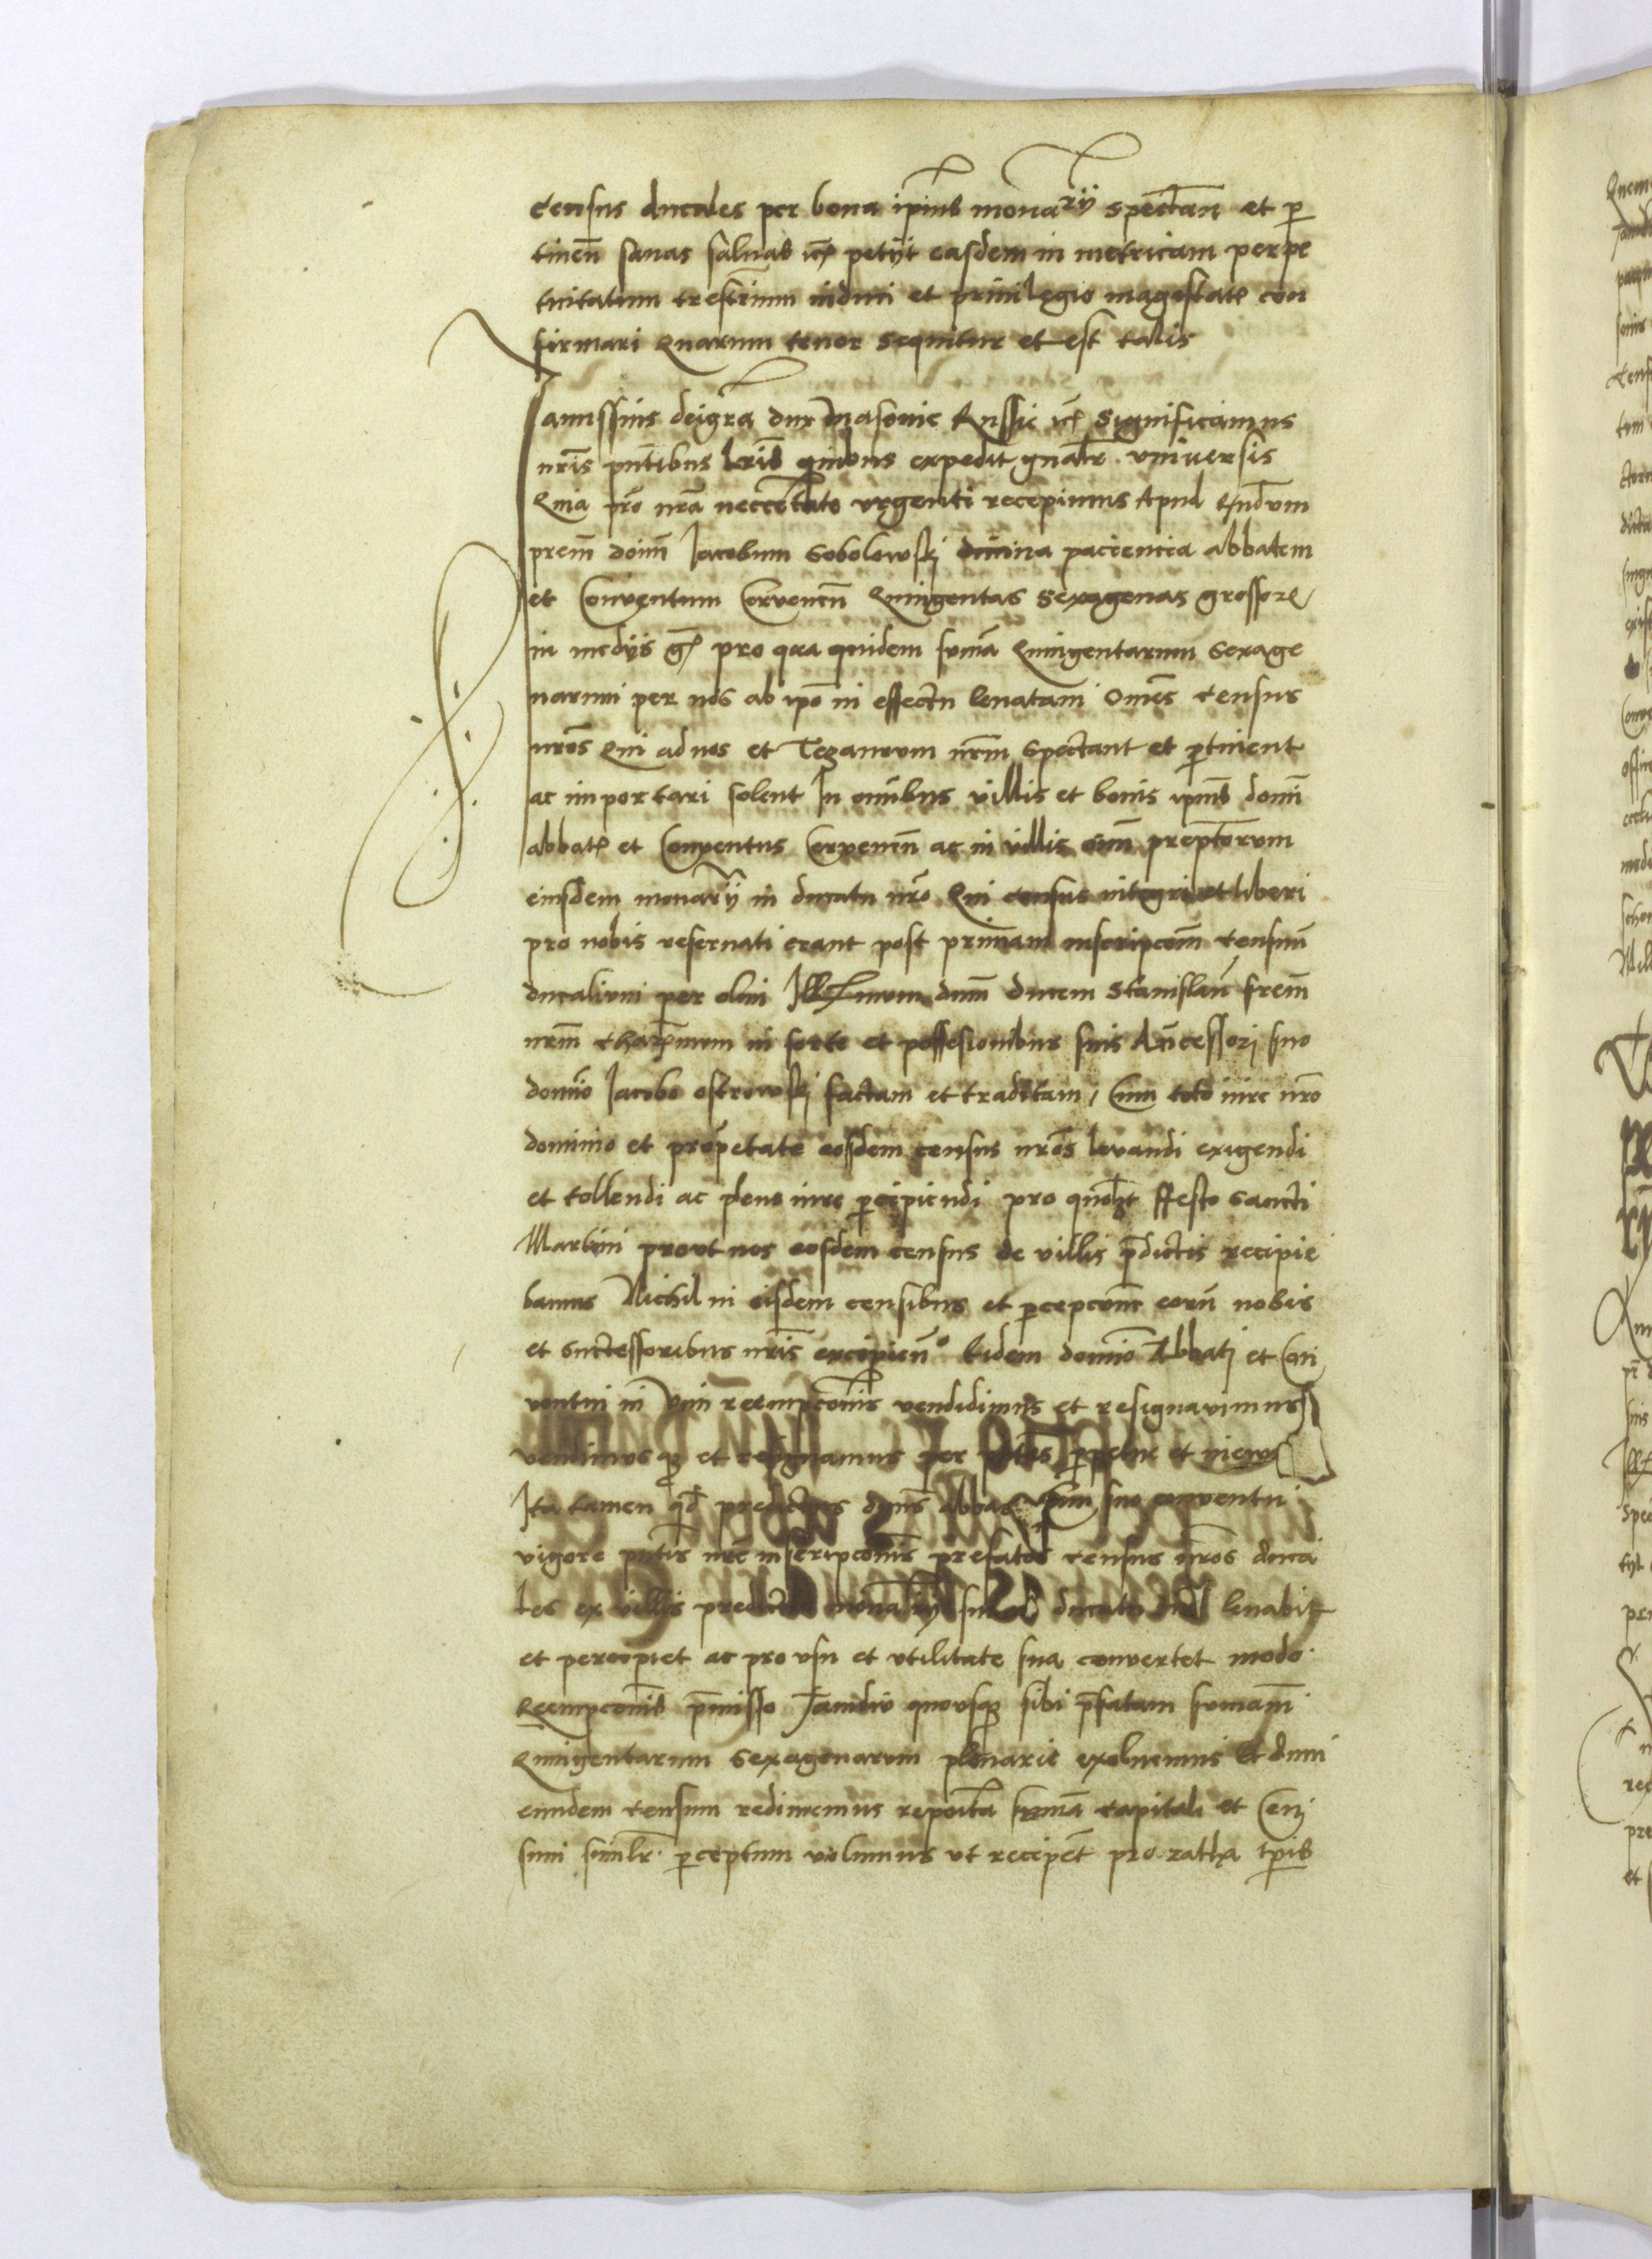 census ducales per bona ipius monarij spectan et p
tinen sanas saluas etc petijt easdem in metricam perpe
tuitatum trestrium induci et priuilegio magestate con
firmari Quarum tenor sequitur et est talis
Janussius dei gra dux Masouie Russie etc Significamus
nris pntibus lris quibus expedit gnalr vniuersis
Quia pro nra neccestate vrgenti recepimus Apud Rndum
prem doim Jacobum Sobolowskj diuina paciencia abbatem
et Conventum Cervenen Quingentas Sexagenas grossor
in medijs gr pro qua quidem suma Quingentarum Sexage
narum per nos ab ipo in effectu leuatam Omes census
nros Qui ad nos et Tezaurum nrm Spectant et ptinent
ac importari solent In omibus villis et bonis ipius domi
abbatis et Conventus Cervenen ac in villis omn preptorum
eiusdem monarij in ducatu nro Qui census integri et liberi
pro nobis reseruati erant post primam inscripcom censuu
ducalium per olim Illmum dum Ducem Stanislau frem
nrm charmum in sorte et possesionibus suis Ancessorj suo
domio Jacobo ostrowskj factam et traditam, Cum toto iure nro
dominio et propetate eosdem census nros levandi exigendi
et tollendi ac pleno iure pcipiendi pro quolzt ffesto Sancti
Martini prout nos eosdem census de villis pdictis recipie
bamus Nichil in eisdem censibus et pcepcone eoru nobis
et Successoribus nris excipien Eidem domio Abbatj et Con
ventui in vim reempconis vendidimus et resignavimus
vendimusq et resignamus per pntes ppetue et
Ita tamen qd predictus dnus abbas cum suo conventu
vigore pntis nre inscripconis prefatos census nros duca
les ex villis predictis monarij sui in ducatu nro leuabit
et percipiet ac pro vsu et vtilitate sua convertet modo
Reempconis pmisso Tamdiu quousq sibi pfatam sumam
Quingentarum Sexagenarum plenarie exoluemus Et dum
eundem censum redimemus reposita suma capitali et Cen
sum similr pceptum volumus ut recipet pro ratha tpis